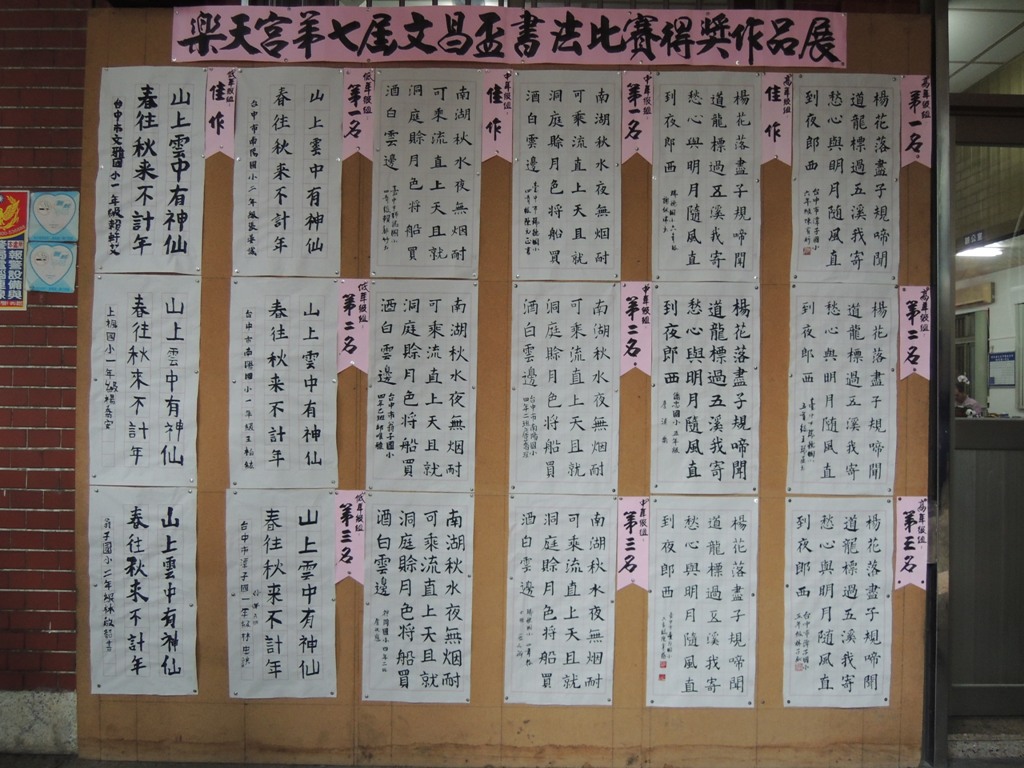 樂天宮第七屆文昌盃書法比賽得獎作品展
高年級組
第一名
楊花落盡子規啼聞
道龍標過五溪我寄
愁心與明月隨風直
到夜郎西
高年級組
佳作
楊花落盡子規啼聞
道龍標過五溪我寄
愁心與明月隨風直
到夜郎西
中年級組
第一名
南湖秋水夜無烟耐
可乘流直上天且就
洞庭賒月色將船買
酒白雲邊
中年級組
佳作
南湖秋水夜無烟耐
可乘流直上天且就
洞庭賒月色將船買
酒白雲邊
低年級組
第一名
山上雲中有神仙
春往秋來不計年
低年級組
佳作
山上雲中有神仙
春往秋來不計年
高年級組
第二名
楊花落盡子規啼聞
道龍標過五溪我寄
愁心與明月隨風直
到夜郎西
楊花落盡子規啼聞
道龍標過五溪我寄
愁心與明月隨風直
到夜郎西
中年級組
第二名
南湖秋水夜無烟耐
可乘流直上天且就
洞庭賒月色將船買
酒白雲邊
南湖秋水夜無烟耐
可乘流直上天且就
洞庭賒月色將船買
酒白雲邊
低年級組
第二名
山上雲中有神仙
春往秋來不計年
山上雲中有神仙
春往秋來不計年
高年級組
第三名
楊花落盡子規啼聞
道龍標過五溪我寄
愁心與明月隨風直
到夜郎西
楊花落盡子規啼聞
道龍標過五溪我寄
愁心與明月隨風直
到夜郎西
中年級組
第三名
南湖秋水夜無烟耐
可乘流直上天且就
洞庭賒月色將船買
酒白雲邊
南湖秋水夜無烟耐
可乘流直上天且就
洞庭賒月色將船買
酒白雲邊
低年級組
第三名
山上雲中有神仙
春往秋來不計年
山上雲中有神仙
春往秋來不計年